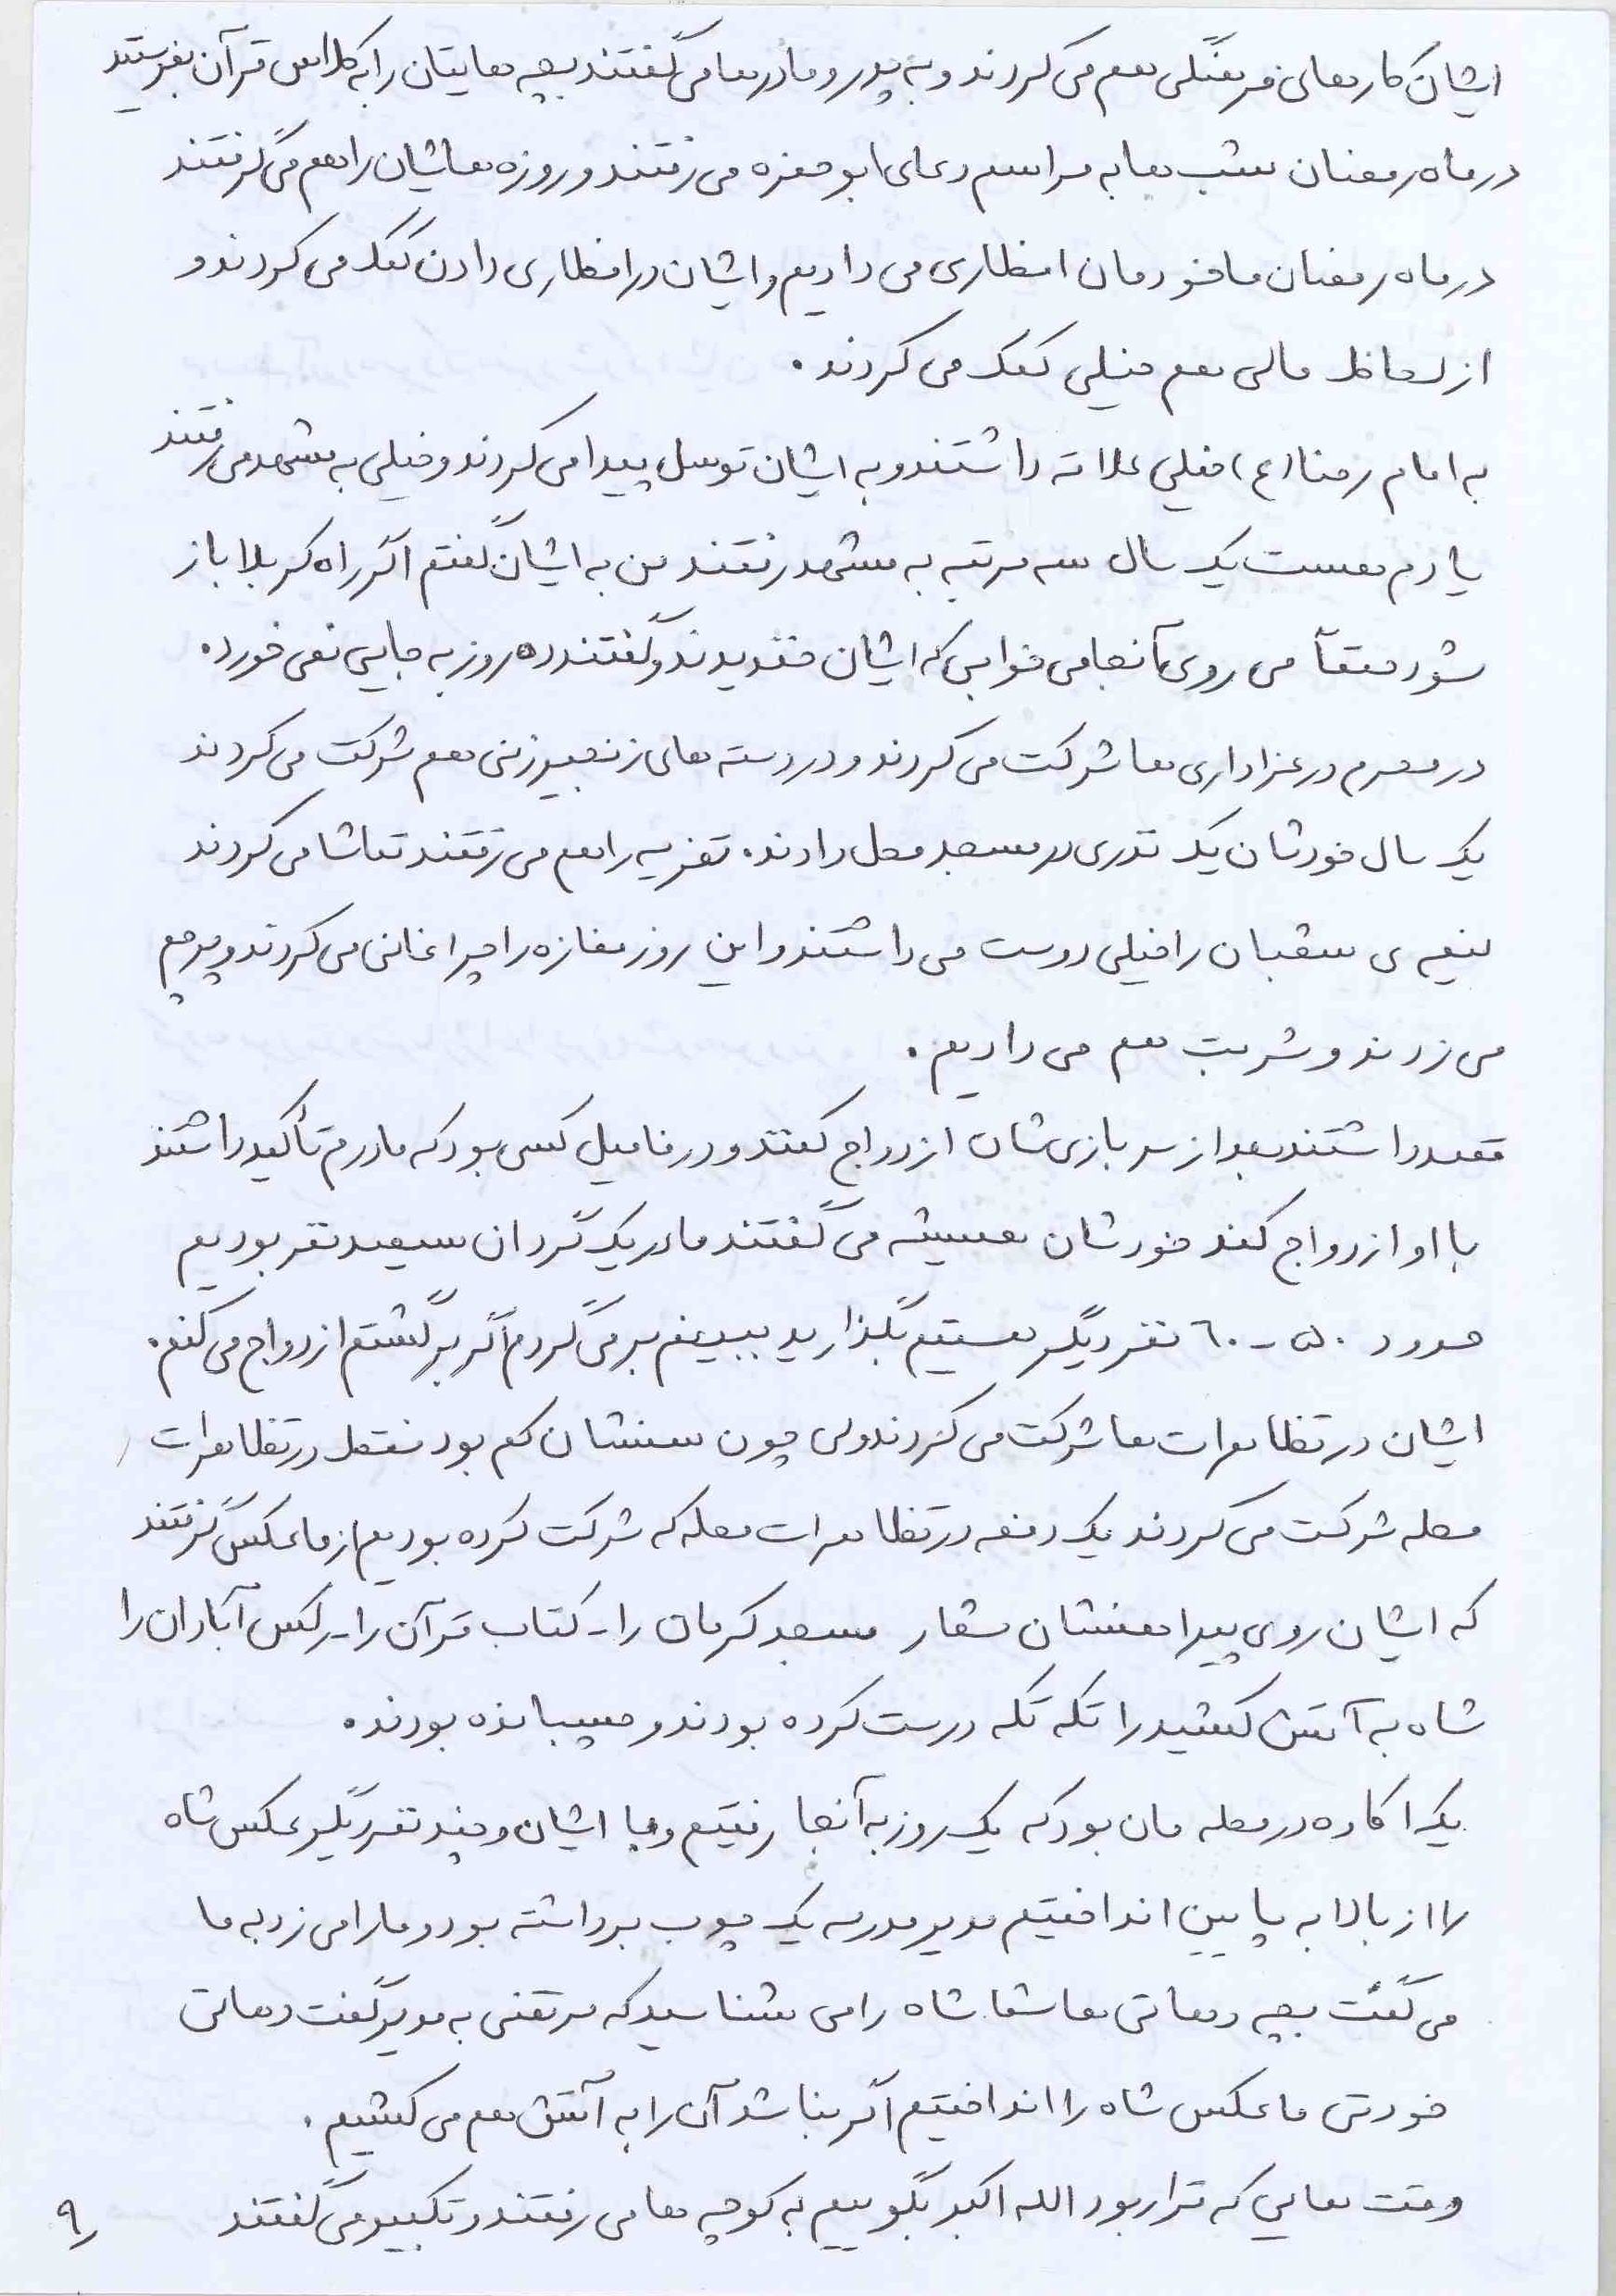 ایشان کارهای فرهنگی هم می کردند و به پدر و مادرها می گفتند بچه هایتان را به کلاس قرآن بفرستید
در ماه رمضان شب ها به مراسم دعای ابوحمزه می رفتند و روزه هاشان را هم می گرفتند
در ماه رمضان ما خودمان افطاری می دادیم و ایشان در افطاری دادن کمک می کردند و
از لحاظ مالی هم خیلی کمک می کردند.
به امام رضا (ع) خیلی علاقه داشتند و به ایشان توسل پیدا می کردند و خیلی به مشهد می رفتند
یادم هست یک سال سه مرتبه به مشهد رفتند من به ایشان گفتم اگر راه کربلا باز
شود حتماً می روی آنجا می خوابی که ایشان خندیدند و گفتند ده روز به جایی نمی خورد.
در محرم در عزاداری ها شرکت می کردند و در دسته های زنجیرزنی هم شرکت می کردند
یک سال خودشان یک نذری در مسجد محل دادند. تعزیه را هم می رفتند تماشا می کردند
نیمه ی شعبان را خیلی دوست می داشتند و این روز مغازه را چراغانی می کردند و پرچم
می زدند و شربت هم می دادیم.
قصد داشتند بعد از سربازی شان ازدواج کنند و در فامیل کسی بود که مادرم تأکید داشتند
با او ازدواج کند خودشان همیشه می گفتند ما در یک گردان سیصد نفر بودیم
حدود ۵۰ - ۶۰ نفر دیگر هستیم بگذارید ببینم برمی گردم اگر برگشتم ازدواج می کنم.
ایشان در تظاهرات ها شرکت می کردند ولی چون سنشان کم بود فقط در تظاهرات
محله شرکت می کردند یک دفعه در تظاهرات محله که شرکت کرده بودیم از ما عکس گرفتند
که ایشان روی پیراهنشان شعار مسجد کرمان را - کتاب قرآن را - رکس آبادان را
شاه به آتش کشید را تکه تکه درست کرده بودند و چسبانده بودند.
یک اکاده در محله مان بود که یک روز به آنجا رفتیم و با ایشان و چند نفر دیگر عکس شاه
را از بالا به پایین انداختیم مدیر مدرسه یک چوب برداشته بود و ما را می زد به ما
می گفت بچه دهاتی ها شما شاه را می شناسید که مرتضی به مدیر گفت دهاتی
خودتی ما عکس شاه را انداختیم اگر بنا شد آن را به آتش هم می کشیم.
وقت هایی که قرار بود الله اکبر بگوییم به کوچه ها می رفتند و تکبیر می گفتند
۹